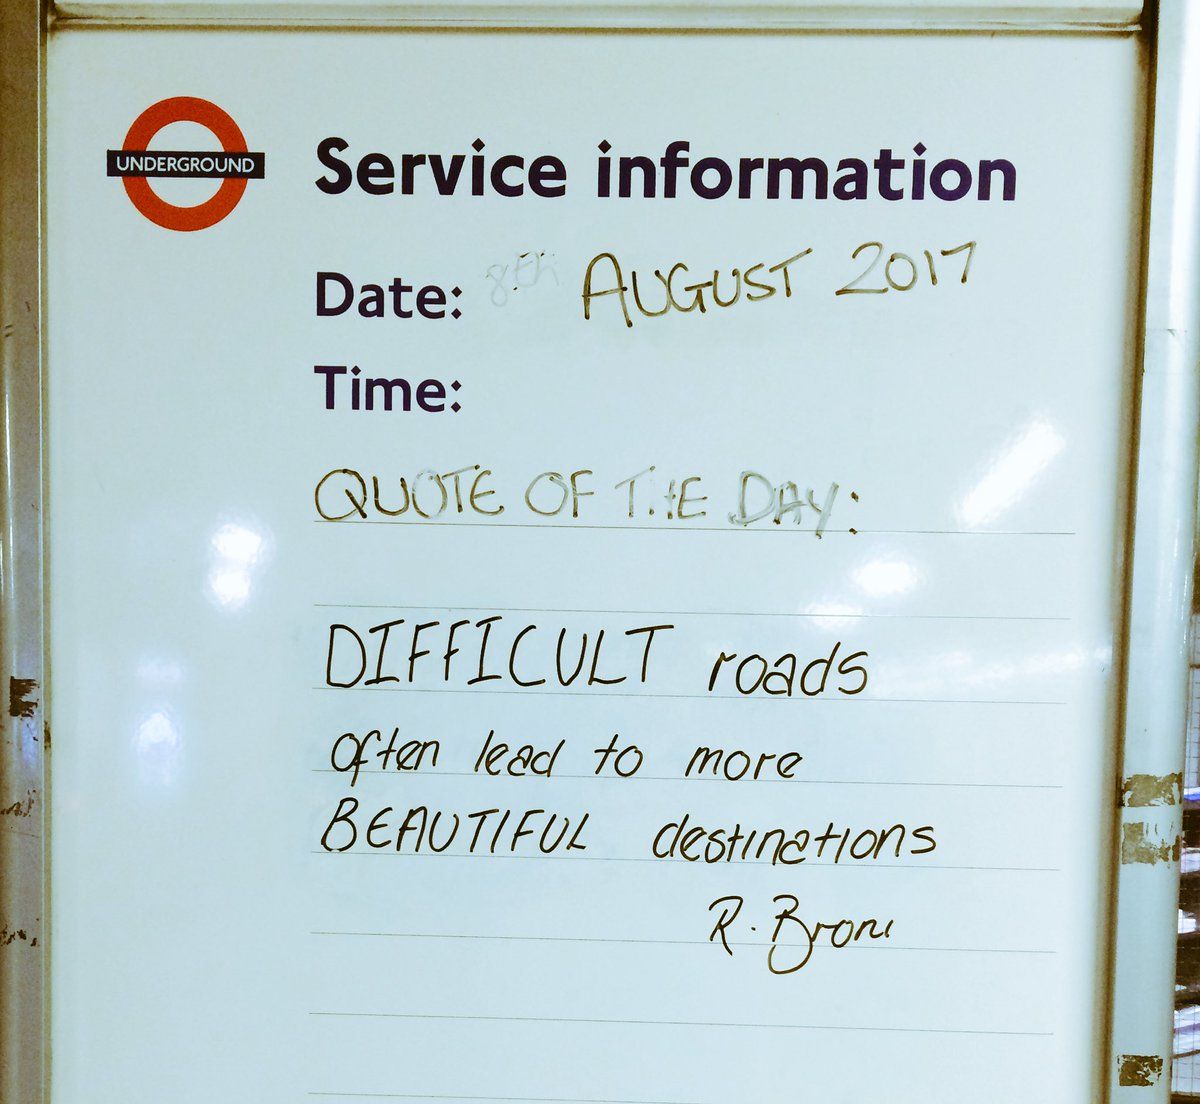 UNDERGROUND
Service information
Date: 8th AUGUST 2017
Time:
QUOTE OF THE DAY:
DIFFICULT roads
often lead to more
BEAUTIFUL destinations
R. Broni